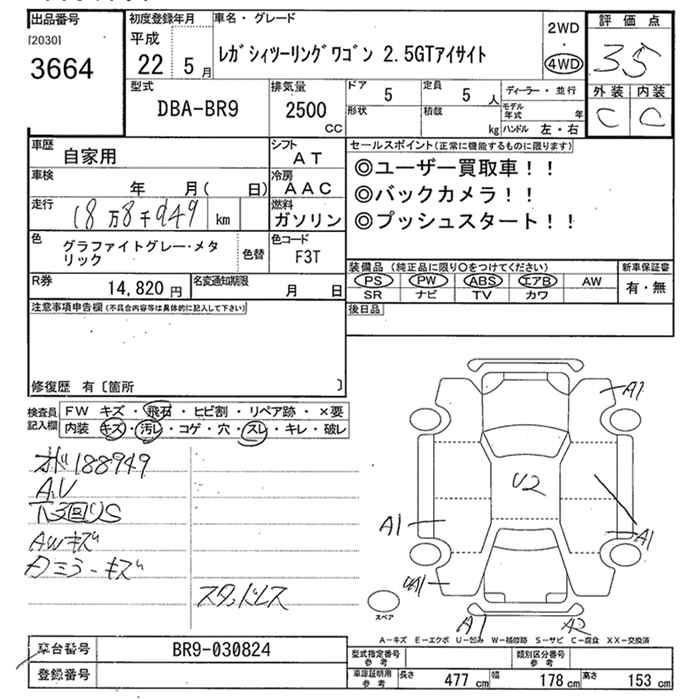 出品番号 初度登録年月 車名・グレード 2WD ・ 4WD 評価点
[2030] 平成
3664 22 5月 ﾚｶﾞｼｨﾂｰﾘﾝｸﾞﾜｺﾞﾝ 2.5GTアイサイト 3.5
型式 排気量 ドア 定員 ディーラー・並行 外装 内装
DBA-BR9 2500 cc 5 5人 モデル年式 年 C C
形状 積載 kg ハンドル 左・右
車歴 自家用 シフト AT セールスポイント(正常に機能するものに限ります)
車検 年 月( 日) 冷房 AAC ◎ユーザー買取車！！
走行 18万8千949 km 燃料 ガソリン ◎バックカメラ！！
◎プッシュスタート！！
色 グラファイトグレー･メタリック 色替 色コード F3T
装備品(純正品に限り○をつけてください) 新車保証書
PS PW ABS エアB AW 有・無
SR ナビ TV カワ
R券 14,820円 名変通知期限 月 日
注意事項申告欄(不具合内容等は具体的に記入して下さい) 後日品
修復歴 有〔箇所 〕
検査員記入欄 FW キズ・飛石・ヒビ割・リペア跡・×要
内装 キズ・汚レ・コゲ・穴・スレ・キレ・破レ
A1
ボ188949
A,V
U2
下回りS
A1 A1
AWキズ
カミラーキズ
UA1
スタッドレス
スペア
A1 A2
A-キズ E-エクボ U-凹み W-補修跡 S-サビ C-腐食 XX-交換済
車台番号 BR9-030824 型式指定番号 参考 類別区分番号 参考
登録番号 車庫証明用 参考 長さ 477 cm 幅 178 cm 高さ 153 cm